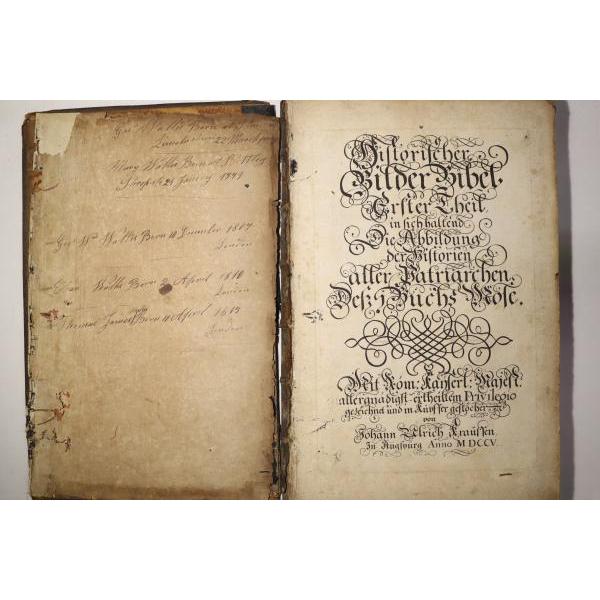 Geo Watts Born
Mary Watts Born
Geo Wm Watts Born 10 December 1807
London
Watts Born 2 April 1810
London
Thomas James Born 11 April 1813
London
Historischer
Bilder Bibel.
Erster Theil
in sich haltend
Die Abbildung
der Historien
aller Patriarchen.
Deß 1 Buchs Mose.
Mit Rom: Kayserl: Majest.
allergnädigst ertheiltem Privilegio
gezeichnet und in Kupffer gestochen
von
Johann Ulrich Kraussen
In Augspurg Anno MDCCV